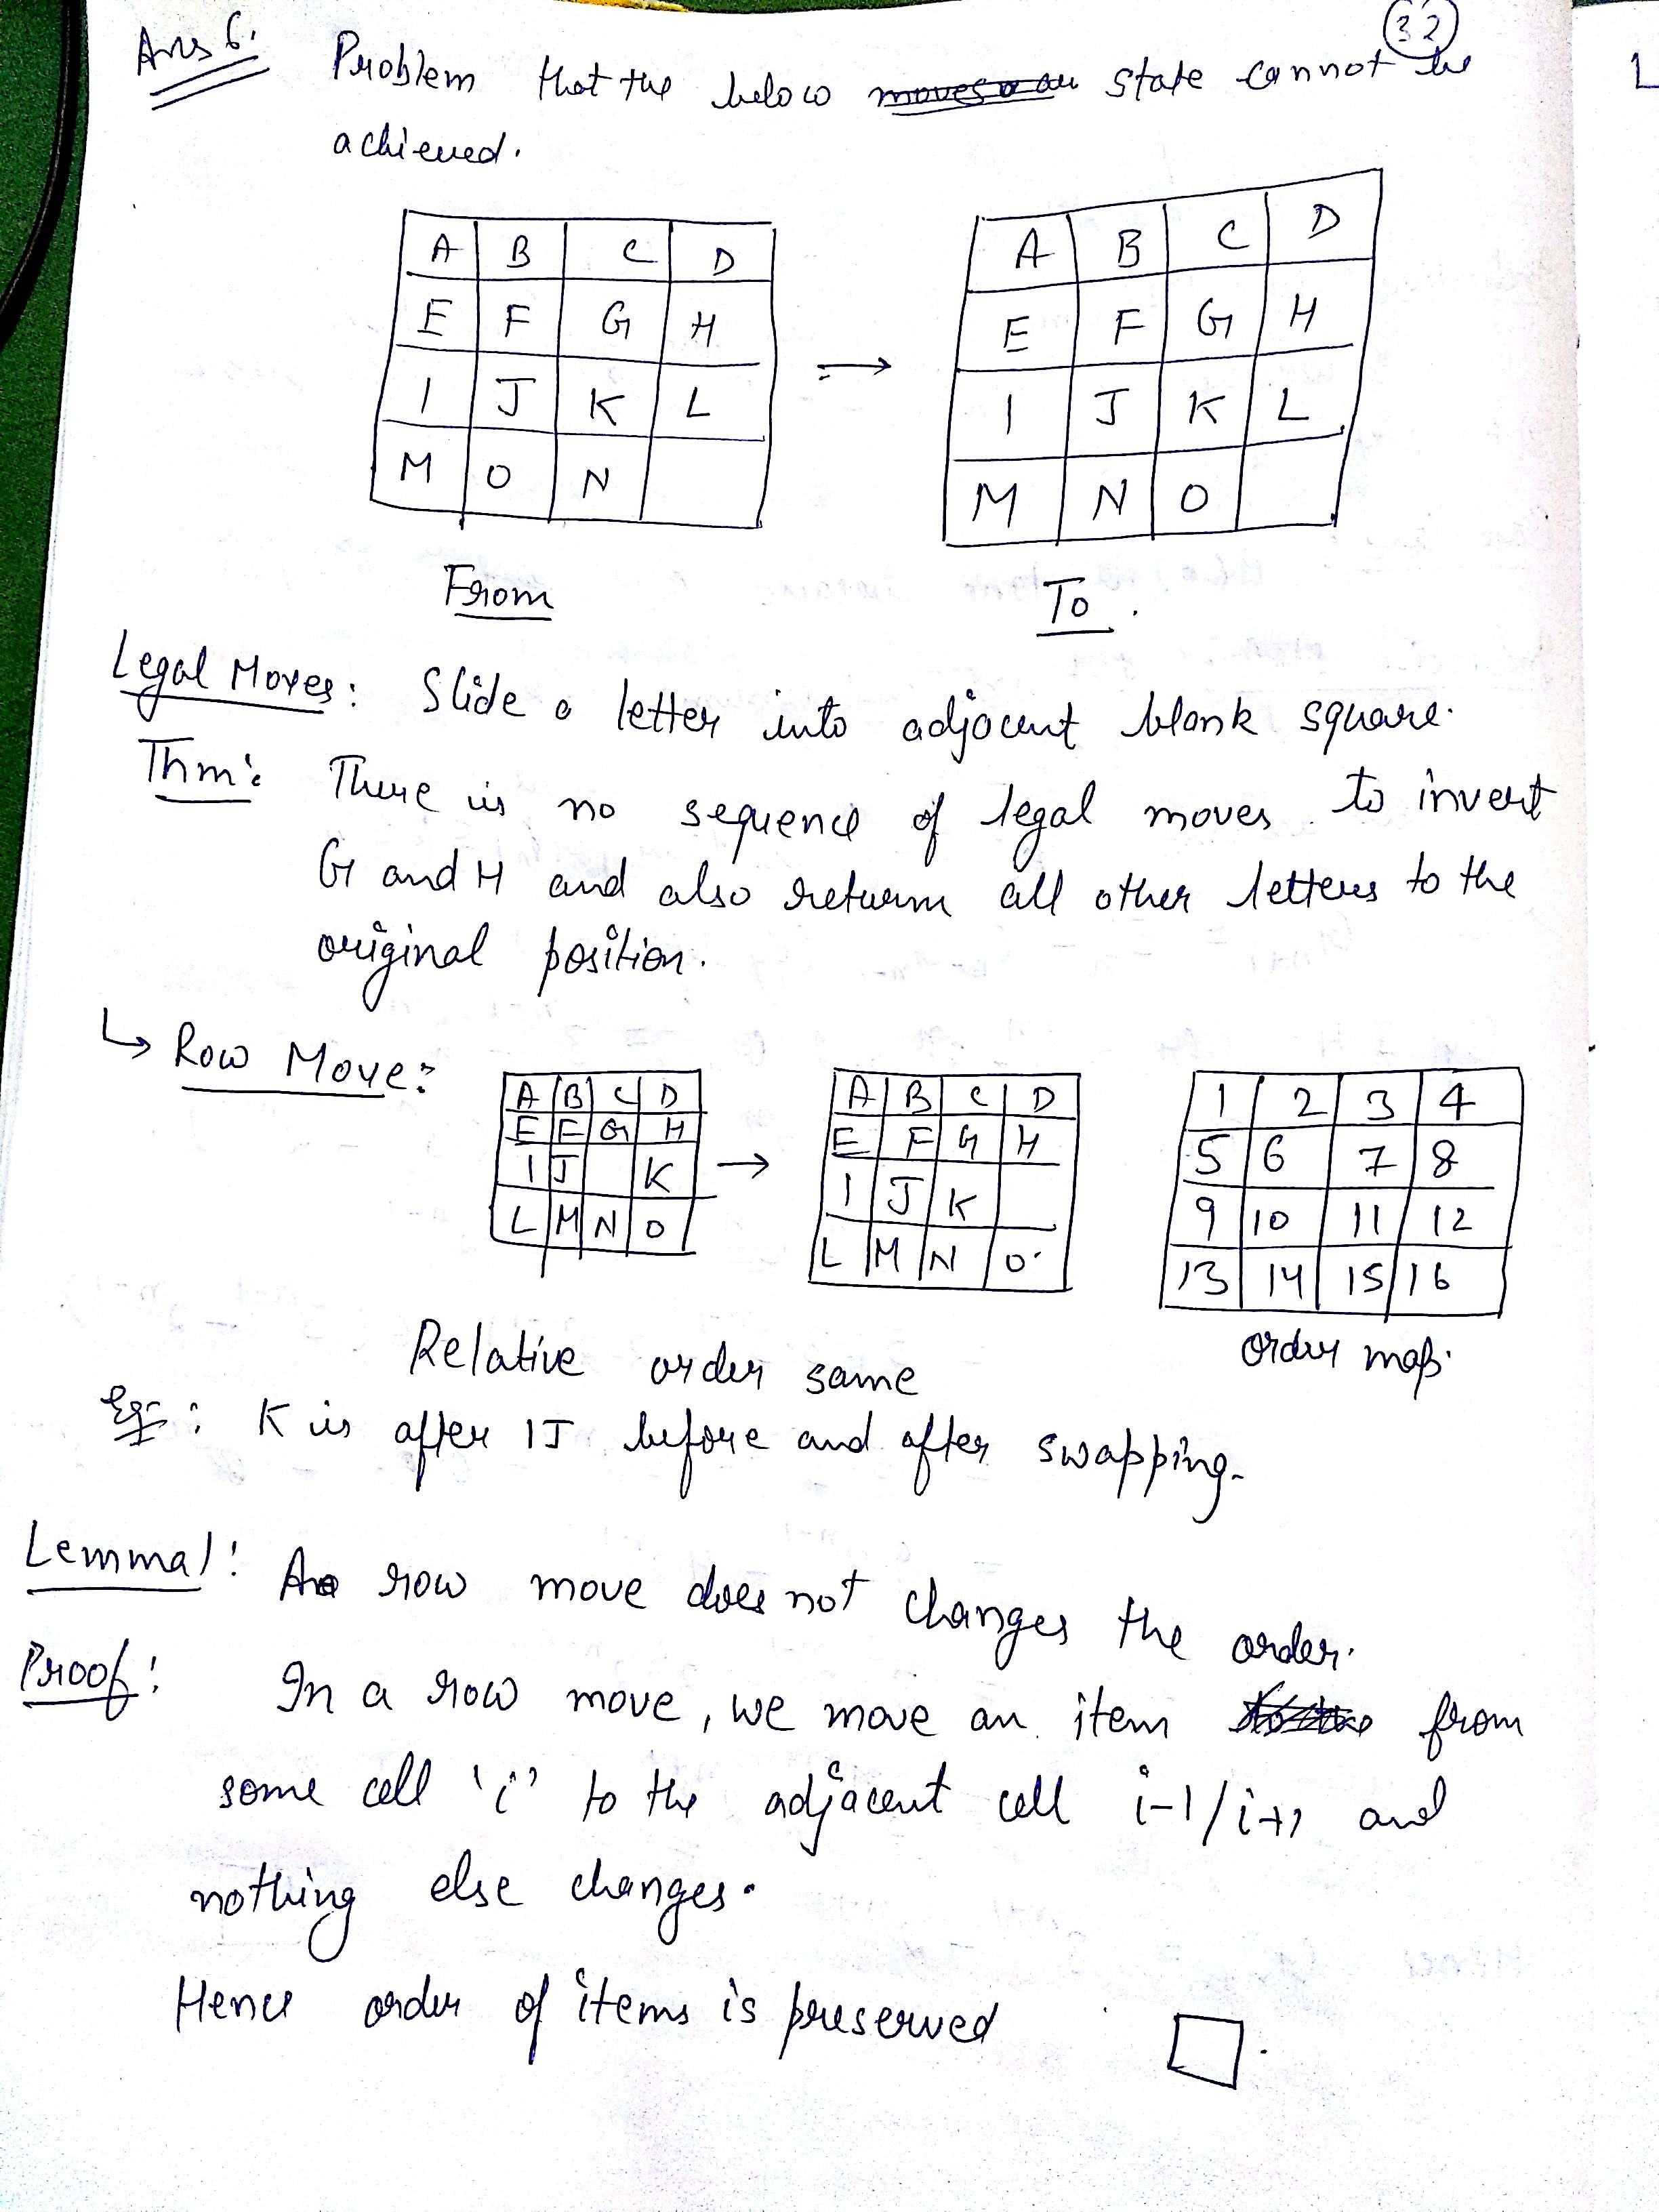 32
Ans 6. Problem that the below state cannot be
achieved.
A B C D
E F G H
I J K L
M O N
→
A B C D
E F G H
I J K L
M N O
From
To.
Legal Moves: Slide a letter into adjacent blank square.
Thm: There is no sequence of legal moves to invert
G and H and also return all other letters to the
original position.
↳ Row Move:
A B C D
E F G H
I J K
L M N O
→
A B C D
E F G H
I J K
L M N O
1 2 3 4
5 6 7 8
9 10 11 12
13 14 15 16
Relative order same
order map.
Eg: K is after IJ before and after swapping.
Lemma 1: A row move does not changes the order.
Proof: In a row move, we move an item from
some cell 'i' to the adjacent cell i-1/i+1 and
nothing else changes.
Hence order of items is preserved